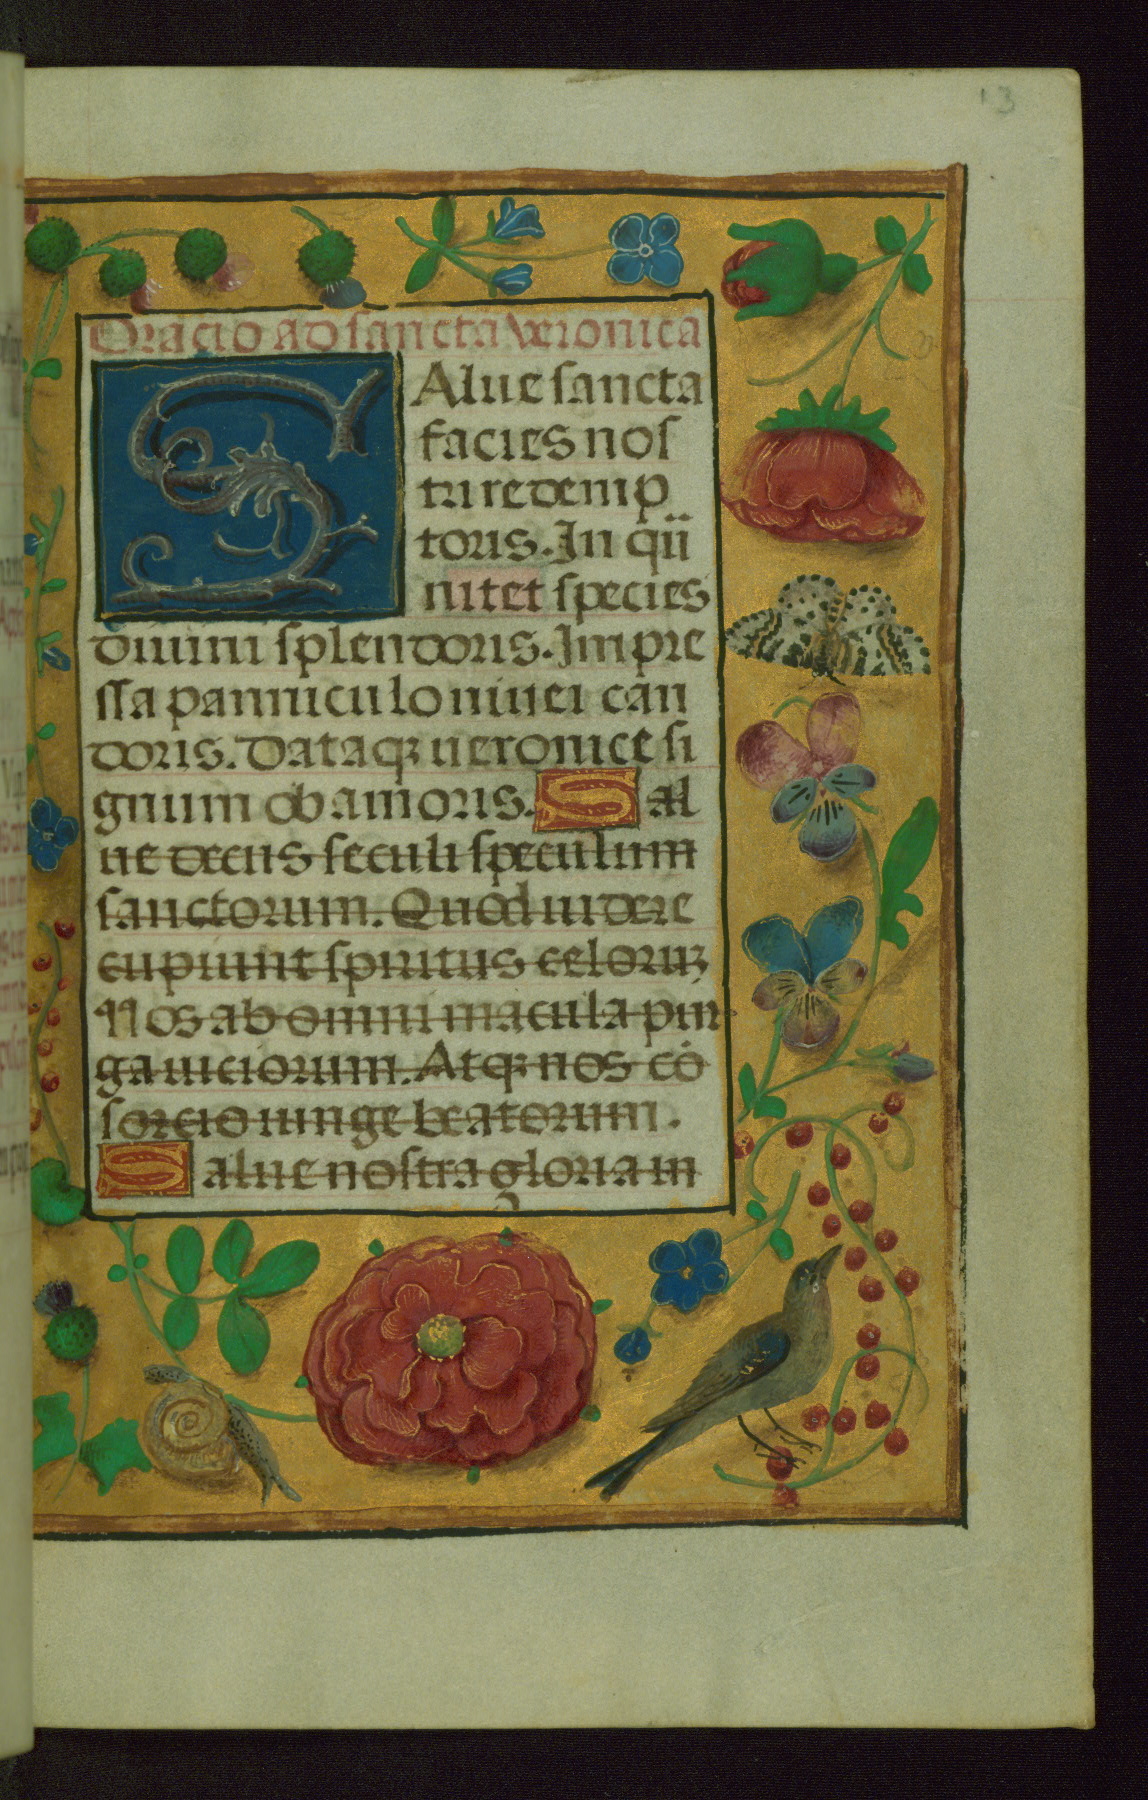 13
Oracio ad sancta veronica
SAlue sancta
facies nos
tri redemp
toris. In qu
nitet species
diuini splendoris. Impre
ssa panniculo niuei can
doris. Dataqꝫ ueronice si
gnum ob amoris. Sal
ue decus seculi speculum
sanctorum. Quod uidere
cupiunt spiritus celoruꝫ
Nos ab omni macula pur
ga uiciorum. Atqꝫ nos cō
sorcio iunge beatorum.
Salue nostra gloria in